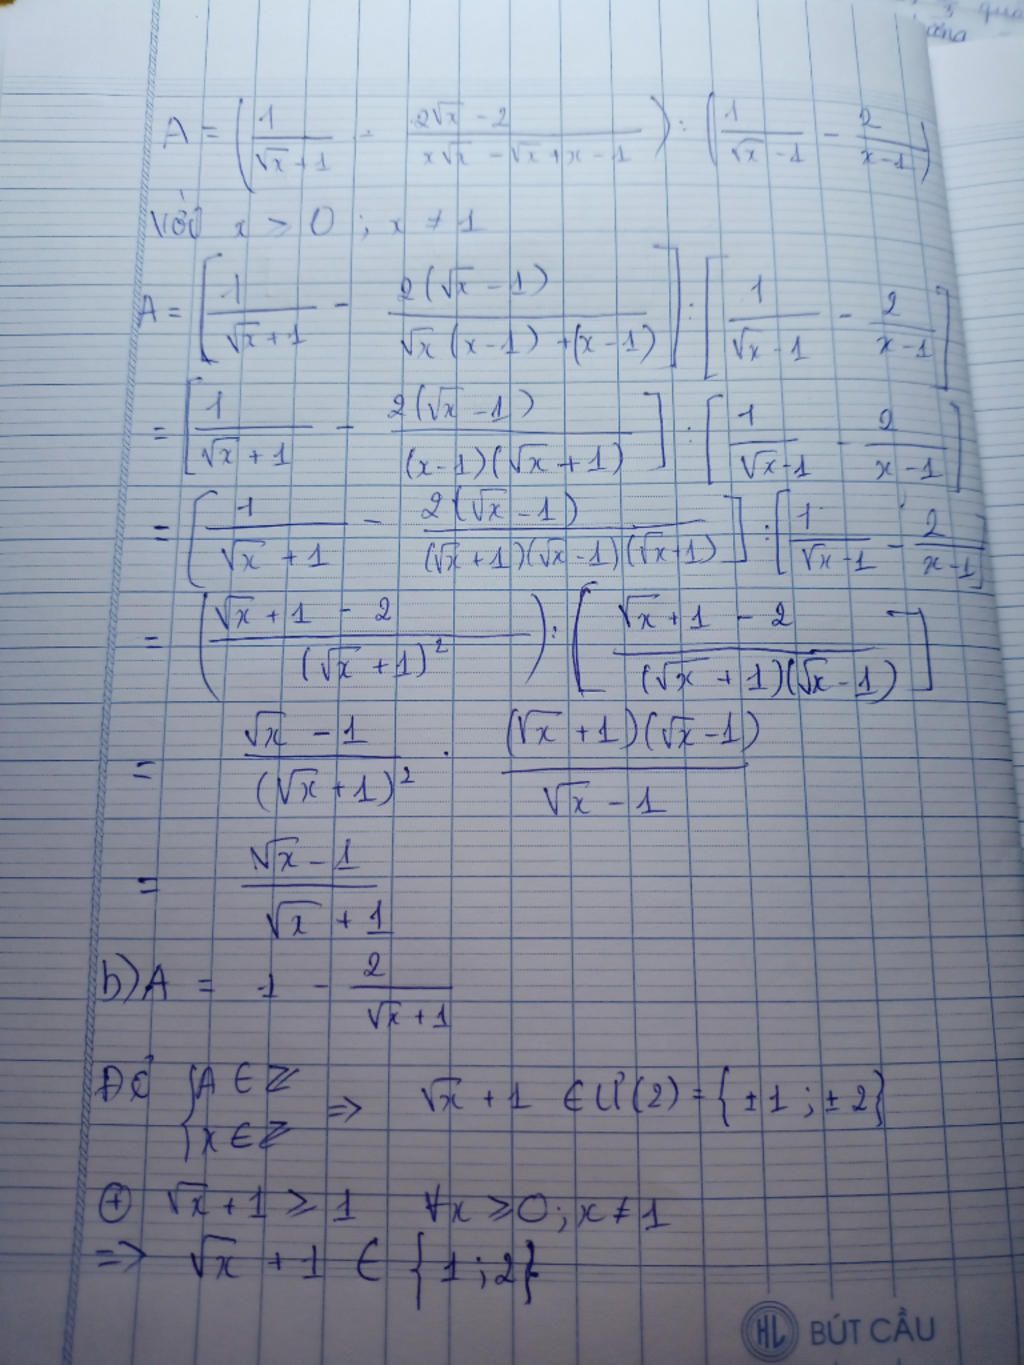 3 quả
A = (1/(√x + 1) - (2√x - 2)/(x√x - √x + x - 1)) : (1/(√x - 1) - 2/(x - 1))
Với x ≥ 0 ; x ≠ 1
A = [1/(√x + 1) - 2(√x - 1)/(√x(x - 1) + (x - 1))] : [1/(√x - 1) - 2/(x - 1)]
= [1/(√x + 1) - 2(√x - 1)/((x - 1)(√x + 1))] : [1/(√x - 1) - 2/(x - 1)]
= [1/(√x + 1) - 2(√x - 1)/((√x + 1)(√x - 1)(√x + 1))] : [1/(√x - 1) - 2/(x - 1)]
= ((√x + 1 - 2)/(√x + 1)²) : [(√x + 1 - 2)/((√x + 1)(√x - 1))]
= (√x - 1)/(√x + 1)² . ((√x + 1)(√x - 1))/(√x - 1)
= (√x - 1)/(√x + 1)
b) A = 1 - 2/(√x + 1)
Để {A ∈ Z
{x ∈ Z => √x + 1 ∈ Ư(2) = {±1 ; ±2}
⊕ √x + 1 ≥ 1 ∀x ≥ 0 ; x ≠ 1
=> √x + 1 ∈ {1 ; 2}
HL BÚT CẦU